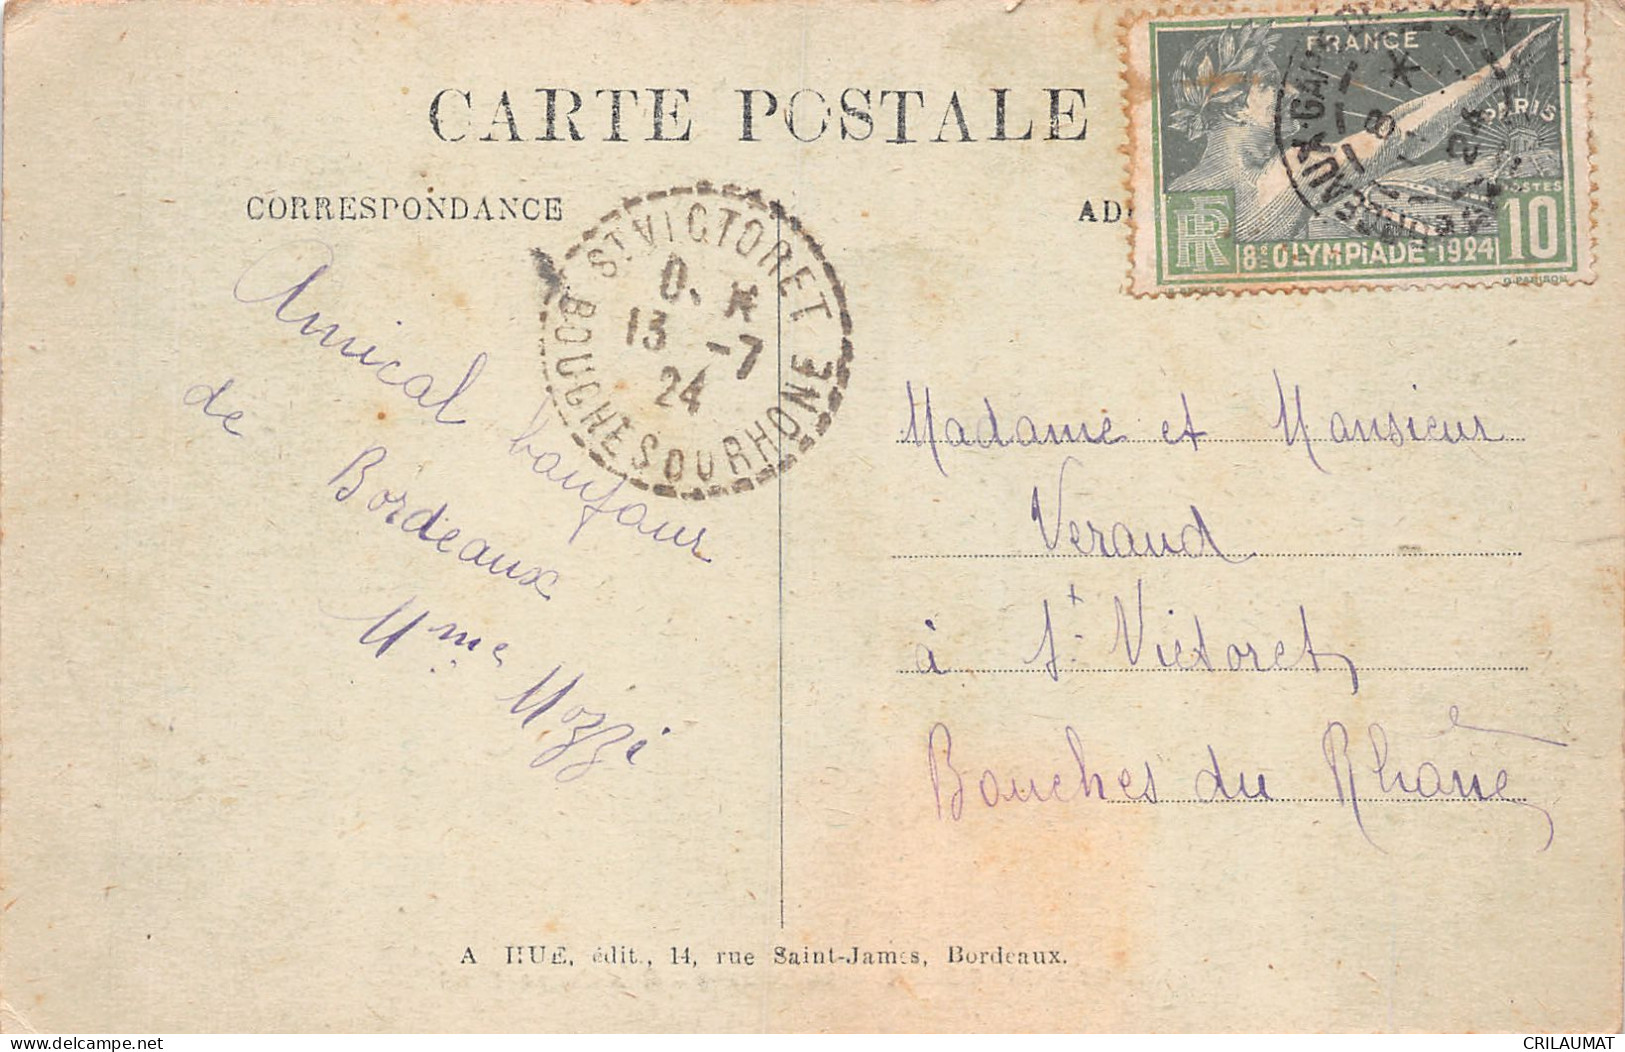 CARTE POSTALE
FRANCE
PARIS
POSTES
RF
8e OLYMPIADE-1924
10
CORRESPONDANCE
AD
ST VICTORET
13 -7
24
BOUCHES DU RHONE
Amical bonjour
de Bordeaux
Mme Mozzi
Madame et Monsieur
Veraud
à St Victoret
Bouches du Rhône
A HUE, édit., 14, rue Saint-James, Bordeaux.
CRILAUMAT